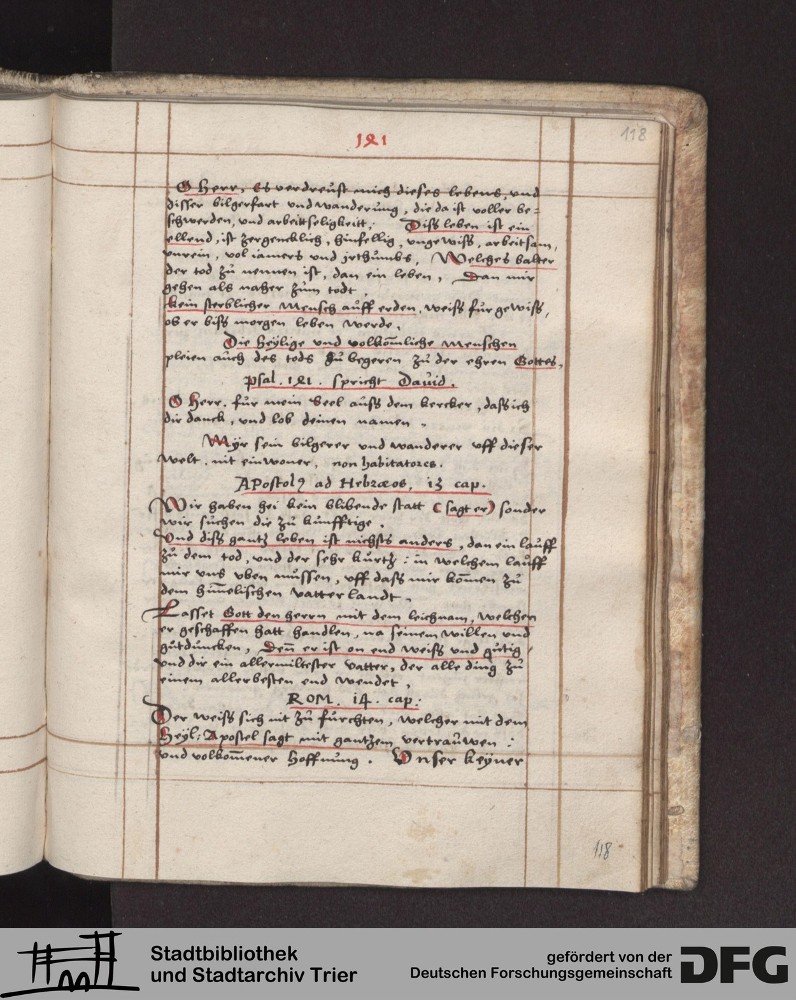 118
141
O Herr, Es verdreust mich dieses lebens, und
disser bilgerfart und wanderung, die da ist voller be=
schwerden, und arbeittseligkeitt. Diss leben ist ein
ellend, ist zergencklich, hinfellig, ungewiss, arbeitsam,
unrein, vol iamers und jrthumbs, Welches balter
der tod zu nennen ist, dan ein leben, Dan mir
gehen als naher zum todt
kein sterblicher mensch auff erden, weiss fur gewiss,
ob er biss morgen leben werde.
Die heylige und volkom̄liche menschen
pleien auch des tods zu begeren zu der ehren Gottes,
Psal. 141. spricht David.
O Herr, fur mein Seel auss dem kercker, dass ich
dir danck, und lob deinen namen.
Myr sein bilgerer und wanderer uff dieser
welt, nit einwoner, non habitatores.
Apostolꝰ ad Hebræos, 13 cap.
Wir haben hei kein blibende statt (sagt er) sonder
wir suchen die zu kunfftige.
Und diss gantz leben ist nichsts anders, dan ein lauff
zu dem tod, und der sehr kurtz: in welchem lauff
mir uns uben mussen, uff dass mir kom̄en zu
dem him̄elischen vatterlandt.
Lasset Gott den herrn mit dem leichnam, welchen
er geschaffen hatt handlen, na seinem willen und
gutduncken, Den̄ er ist on end weiss und gutig,
und dir ein allermiltester vatter, der alle ding zu
einem allerbesten end wendet.
ROM. 14. cap:
Der weiss sich nit zu furchten, welcher mit dem
Heyl: Apostel sagt mit gantzem vertrauwen:
und volkom̄ener Hoffnung. Unser keyner
118
Stadtbibliothek
und Stadtarchiv Trier
gefördert von der
Deutschen Forschungsgemeinschaft
DFG